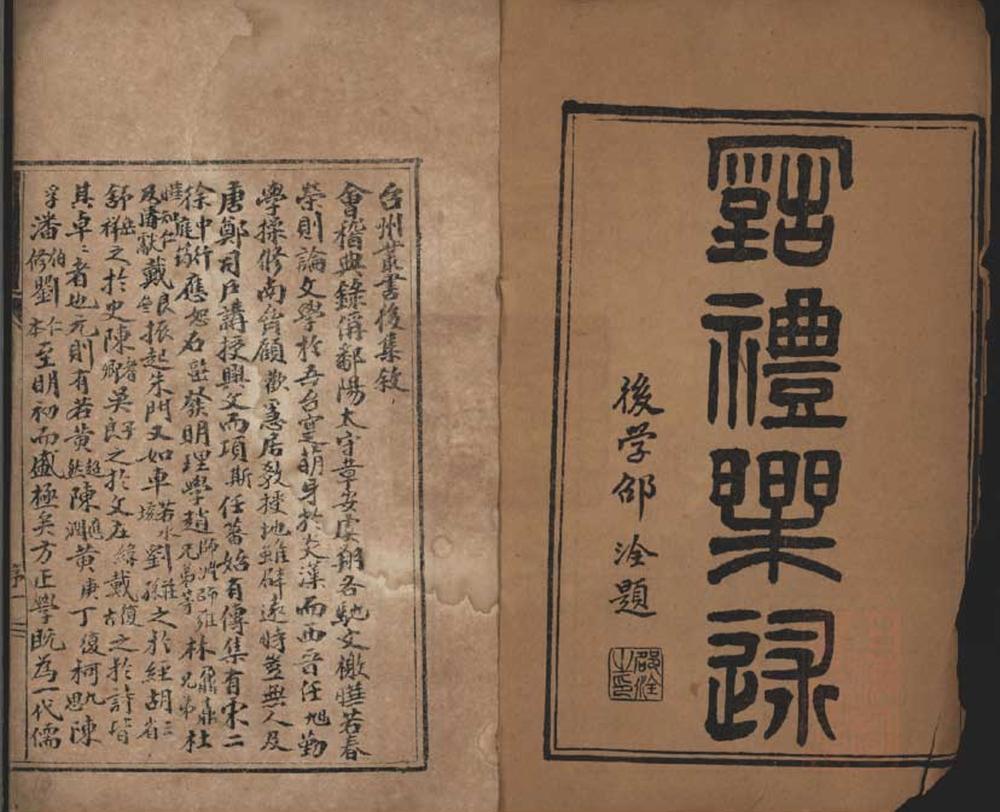 禮樂述
後学邵淦題
邵淦之印
台州叢書後集敘
會稽典錄偁鄱陽太守章安虞翔各馳文檄曄若春
榮則論文學於吾台寔萌身於炎漢而西晉任旭勤
學操修南齊顧歡、愚居教授地雖僻遠時豈無人及
唐鄭司戶講授興文而項斯任蕃始有傳集有宋二
徐中行庭筠應恕石𡼖發明理學趙師淵師雍兄弟等林鼐鼒兄弟杜
曄知仁及濬獻戴良齊振起朱門又如車若水劉莊孫之於經胡三省
舒岳祥之於史陳耆卿吳子良之於文左緯戴復古之於詩皆
其卓〻者也元則有若黃超然陳應潤黃庚丁復柯九思陳
孚潘伯修劉仁本至明初而盛極矣方正學既為一代儒
序一